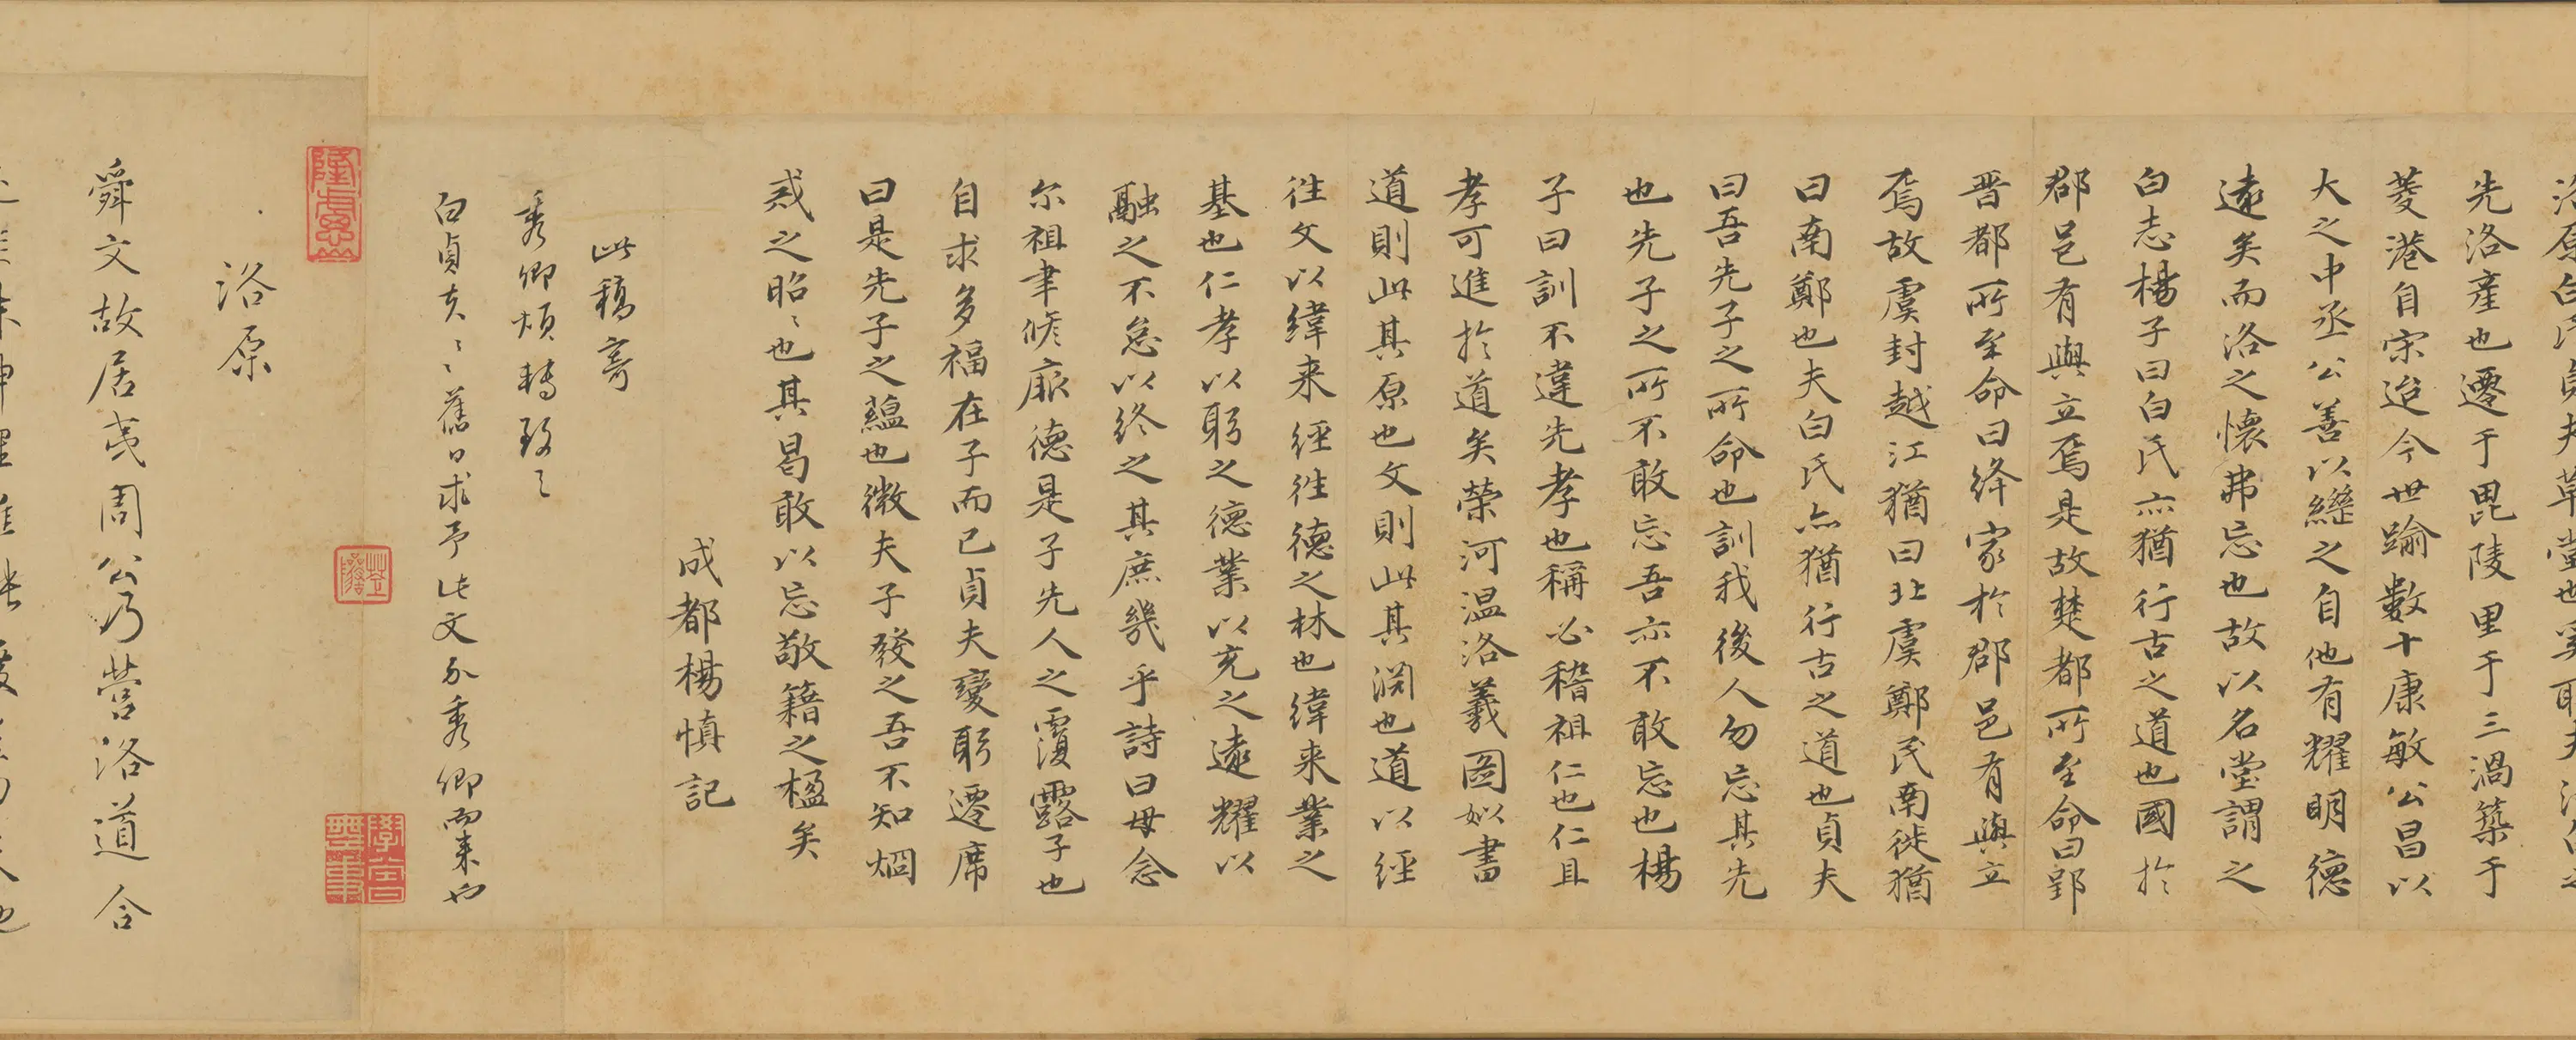 先洛產也遷于毘陵里于三渦築于
菱港自宋迨今世踰數十康敏公昌以
大之中丞公善以纘之自他有耀明德
遠矣而洛之懷弗忘也故以名堂謂之
白志楊子曰白氏亦猶行古之道也國於
郡邑有與立焉是故楚都所至命曰郢
晋都所至命曰絳家於郡邑有與立
焉故虞封越江猶曰北虞鄭民南徙猶
曰南鄭也夫白氏亦猶行古之道也貞夫
曰吾先子之所命也訓我後人勿忘其先
也先子之所不敢忘吾亦不敢忘也楊
子曰訓不違先孝也稱必稽祖仁也仁且
孝可進於道矣榮河温洛羲圖姒書
道則此其原也文則此其渕也道以經
徃文以緯来經徃德之林也緯来業之
基也仁孝以躬之德業以充之遠耀以
融之不怠以終之其庶幾乎詩曰毋念
尔祖聿脩厥德是子先人之覆露子也
自求多福在子而已貞夫變躬遷席
曰是先子之藴也微夫子發之吾不知
惑之昭〻也其曷敢以忘敬籍之楹矣
成都楊慎記
此稿寄
秀卿煩轉致〻
白貞夫〻〻舊日求予此文尔秀卿而来也
洛原
舜文故居夷周公乃營洛道合